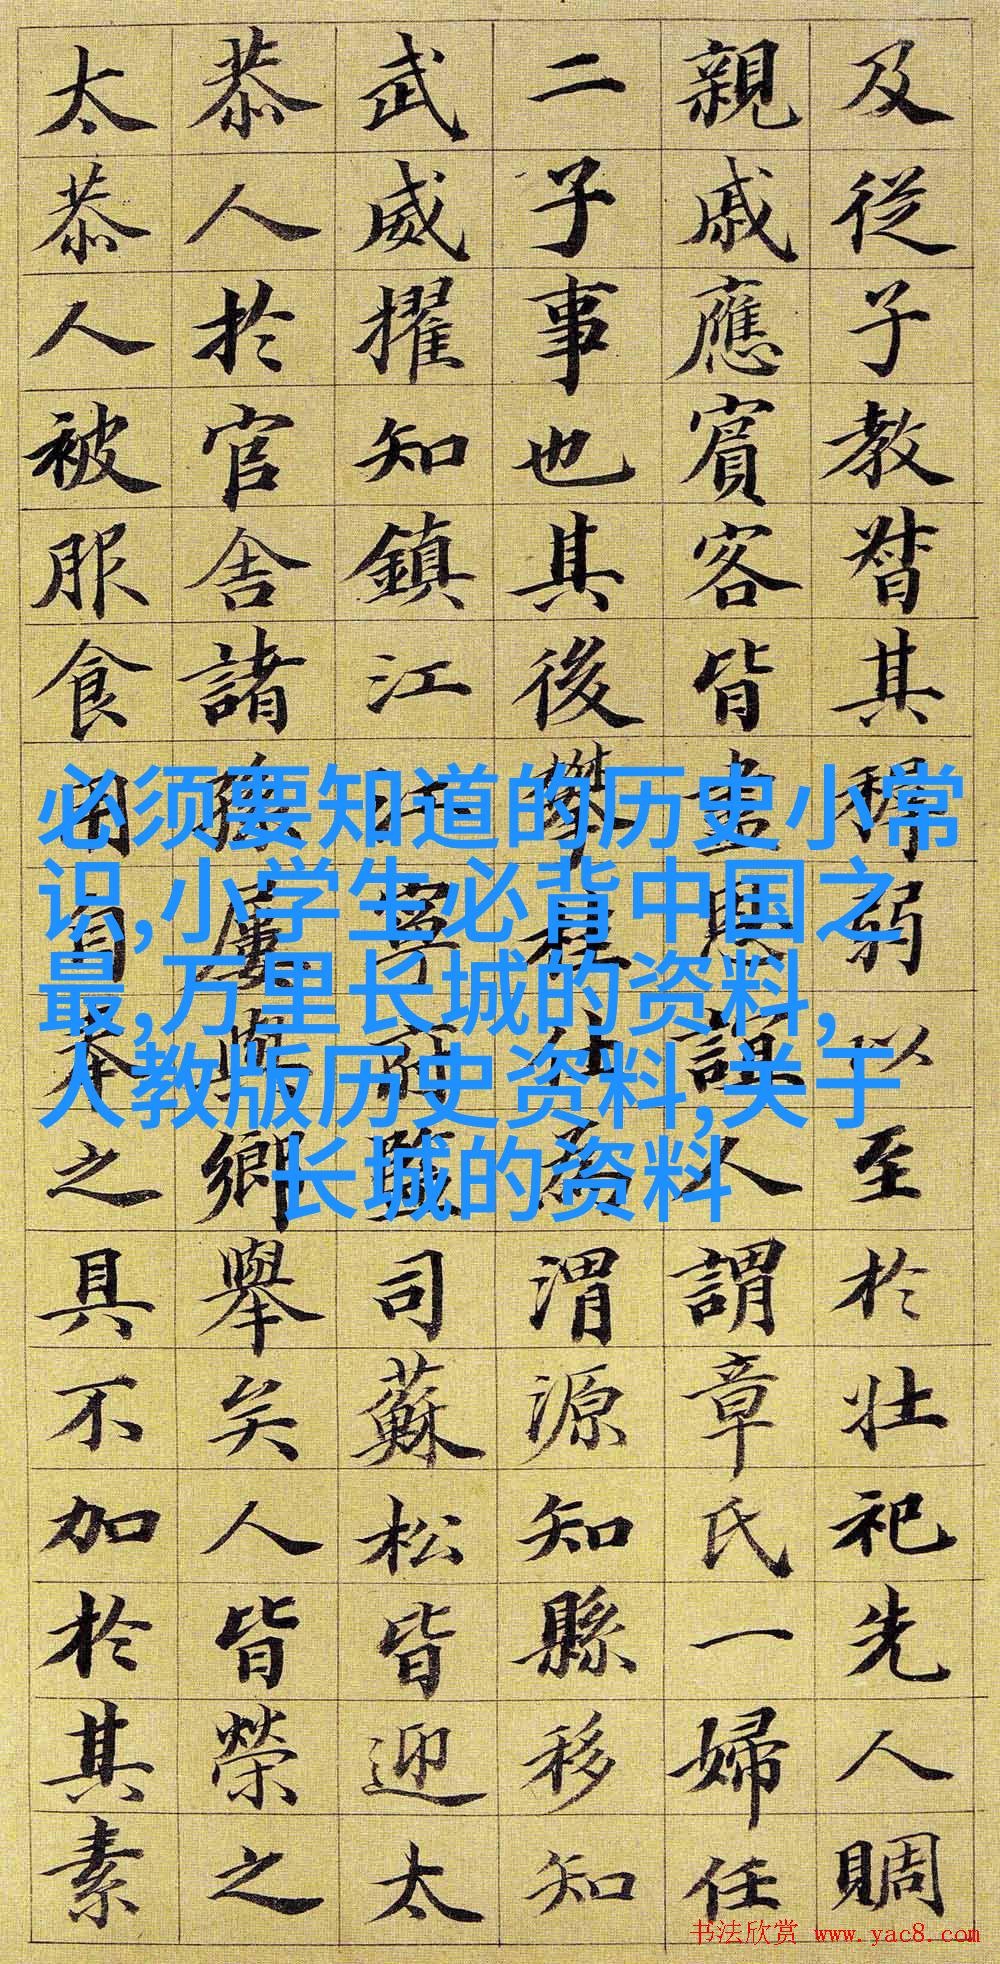 及從子教督其稺弱以至於壯祀先人賙
親戚應賓客皆盡恩誼人謂章氏一婦任
二子事也其後攀桂仕為渭源知縣移知
武威擢知鎮江江寧府監司蘇松皆迎太
恭人於官舍諸孫屢與鄉舉矣人皆榮之
太恭人被服食用自奉之具不加於其素
必须要知道的历史小常
识,小学生必背中国之
最,万里长城的资料,
人教版历史资料,关于
长城的资料
书法欣赏 www.yac8.com